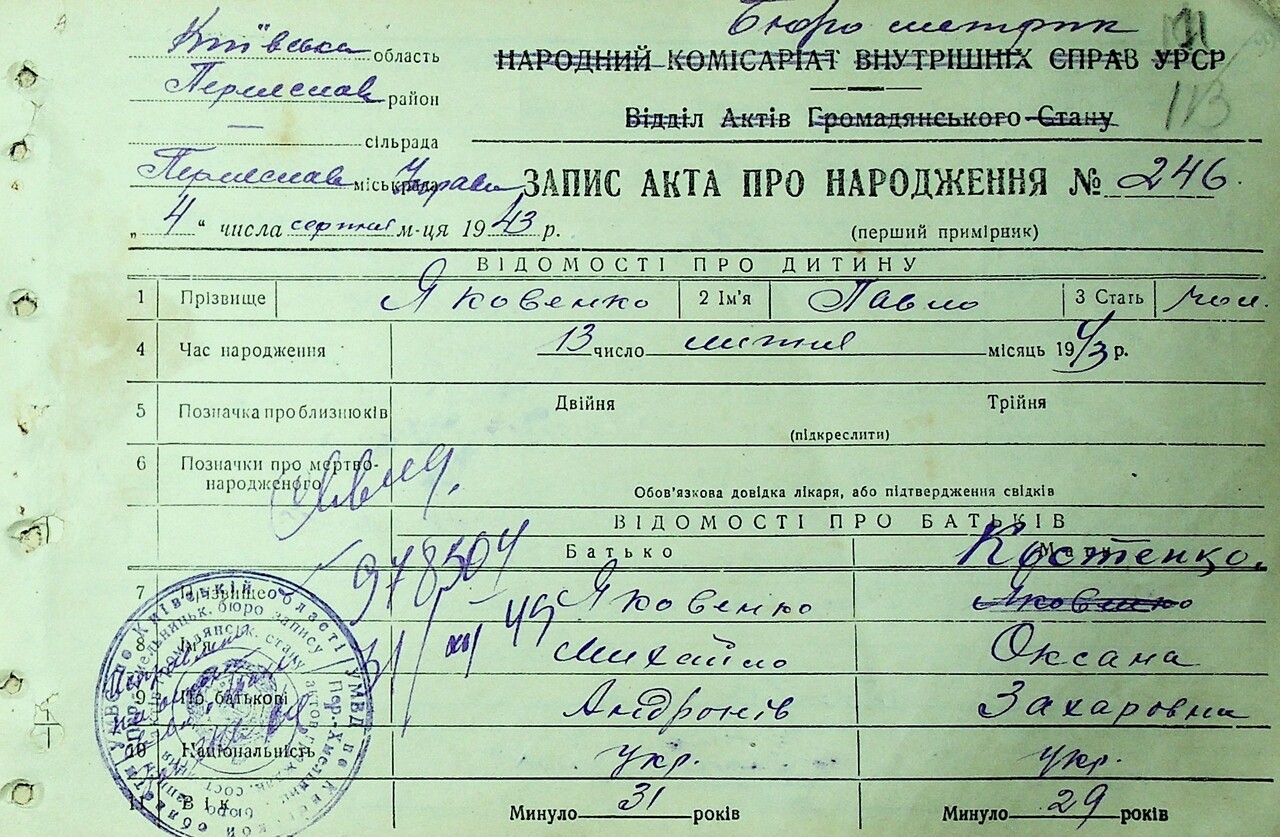 Київська область
Переяслав район
сільрада
Переяслав міськрада Управи
Бюро метрик
НАРОДНИЙ КОМІСАРІАТ ВНУТРІШНІХ СПРАВ УРСР
Відділ Актів Громадянського Стану
113
ЗАПИС АКТА ПРО НАРОДЖЕННЯ № 246.
„4“ числа серпня м-ця 1943 р.
(перший примірник)
ВІДОМОСТІ ПРО ДИТИНУ
1 Прізвище Яковенко 2 Ім'я Павло 3 Стать чол.
4 Час народження 13 число лютня місяць 1943 р.
5 Позначка про близнюків Двійня Трійня
(підкреслити)
6 Позначки про мертво-
народженого
Обов'язкова довідка лікаря, або підтвердження свідків
ВІДОМОСТІ ПРО БАТЬКІВ
Батько Мати
Костенко.
978504
7 Прізвище Яковенко Яковенко
8 Ім'я Михайло Оксана
9 По батькові Андронів Захаровна
10 Національність укр. укр.
11 Вік Минуло 31 років Минуло 29 років